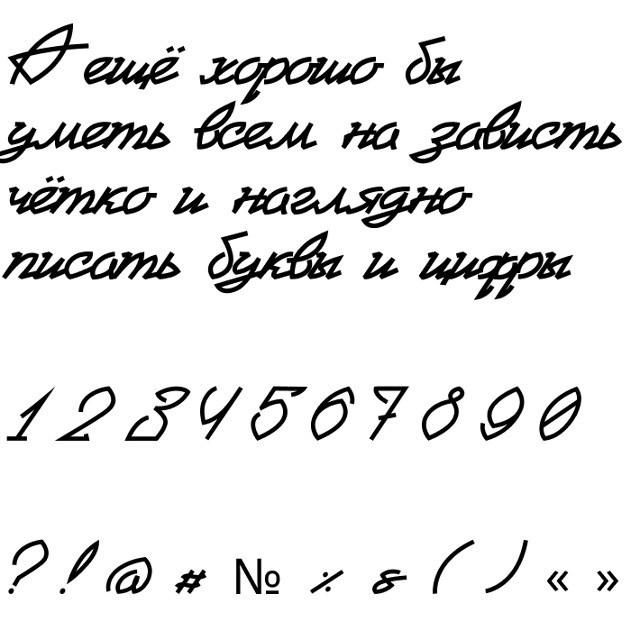 А ещё хорошо бы
уметь всем на зависть
чётко и наглядно
писать буквы и цифры
1 2 3 4 5 6 7 8 9 0
? ! @ # № % & ( ) « »